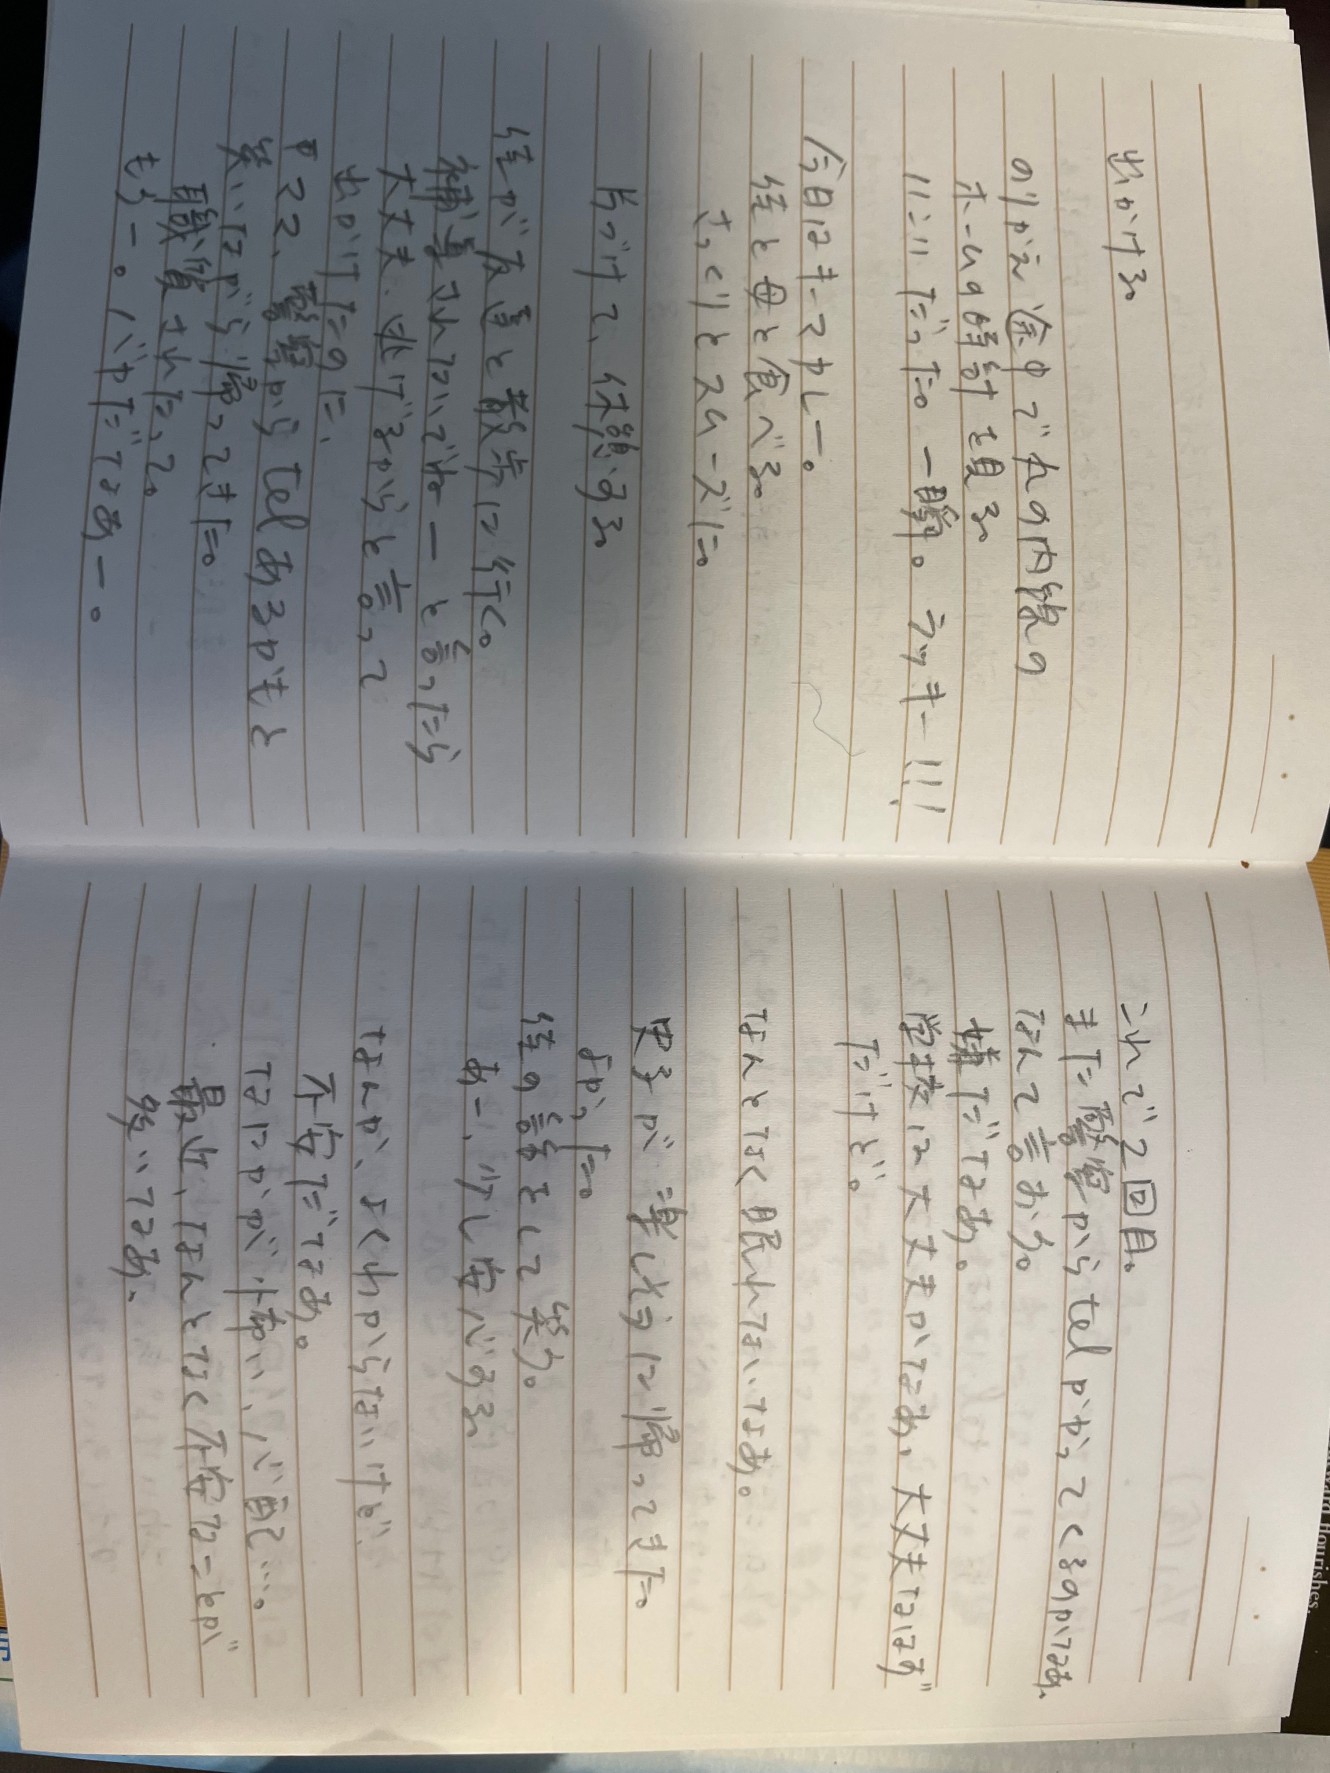 出かける。
のりかえ途中で丸の内線の
ホームの時計を見る。
11:11だった。一瞬。ラッキー!!!
今日はキーマカレー。
侄と母と食べる。
さっくりとスムーズに。
片づけて、休憩する。
侄が友達と散歩に行く。
補導されないでねーと言ったら
大丈夫、逃げるからと言って
出かけたのに、
ママ、警察からtelあるかもと
笑いながら帰ってきた。
職質されたって。
もうー。いやだなあー。
これで2回目。
また警察からtelかかってくるのかなあ。
なんて言おう。
嫌だなあ。
学校は大丈夫かなあ。大丈夫なはず
だけど。
なんとなく眠れないなあ。
史子が楽しそうに帰ってきた。
よかった。
侄の話をして笑う。
あー、少し安心する
なんか、よくわからないけど
不安だなあ。
なにかが怖い、心配…。
最近、なんとなく不安なことが
多いなあ。
Flourishes.